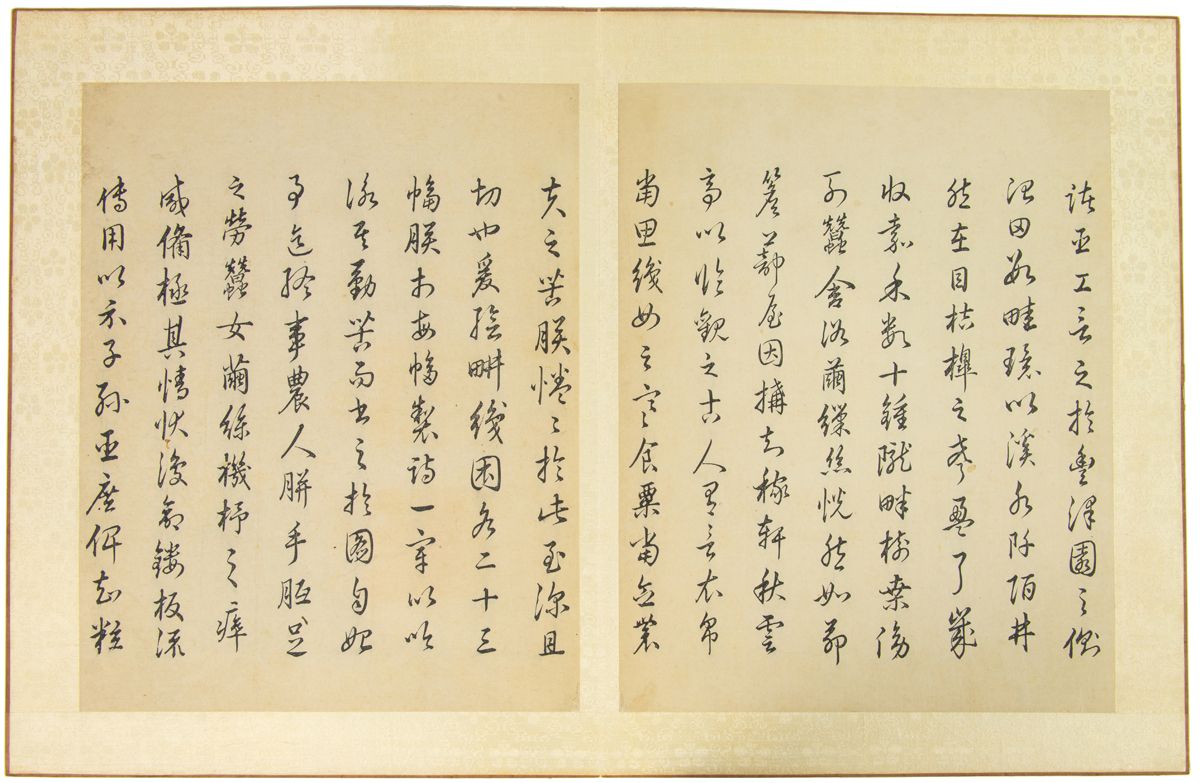 諸臣工言之於豐澤園之側
治田數畦環以溪水阡陌井
然在目桔槔之聲盈耳歲
收嘉禾數十鍾隴畔樹桑傍
列蠶舍浴繭繅絲恍然如茆
簷蔀屋因搆知稼軒秋雲
亭以臨觀之古人有言衣帛
當思織女之寒食粟當念農
夫之苦朕惓惓於此至深且
切也爰繪畊織圖各二十三
幅朕於每幅製詩一章以吟
詠其勤苦而書之於圖自始
事迄終事農人胼手胝足
之勞蠶女繭絲機杼之瘁
咸備極其情狀復命鏤板流
傳用以示子孫臣庶俾知粒